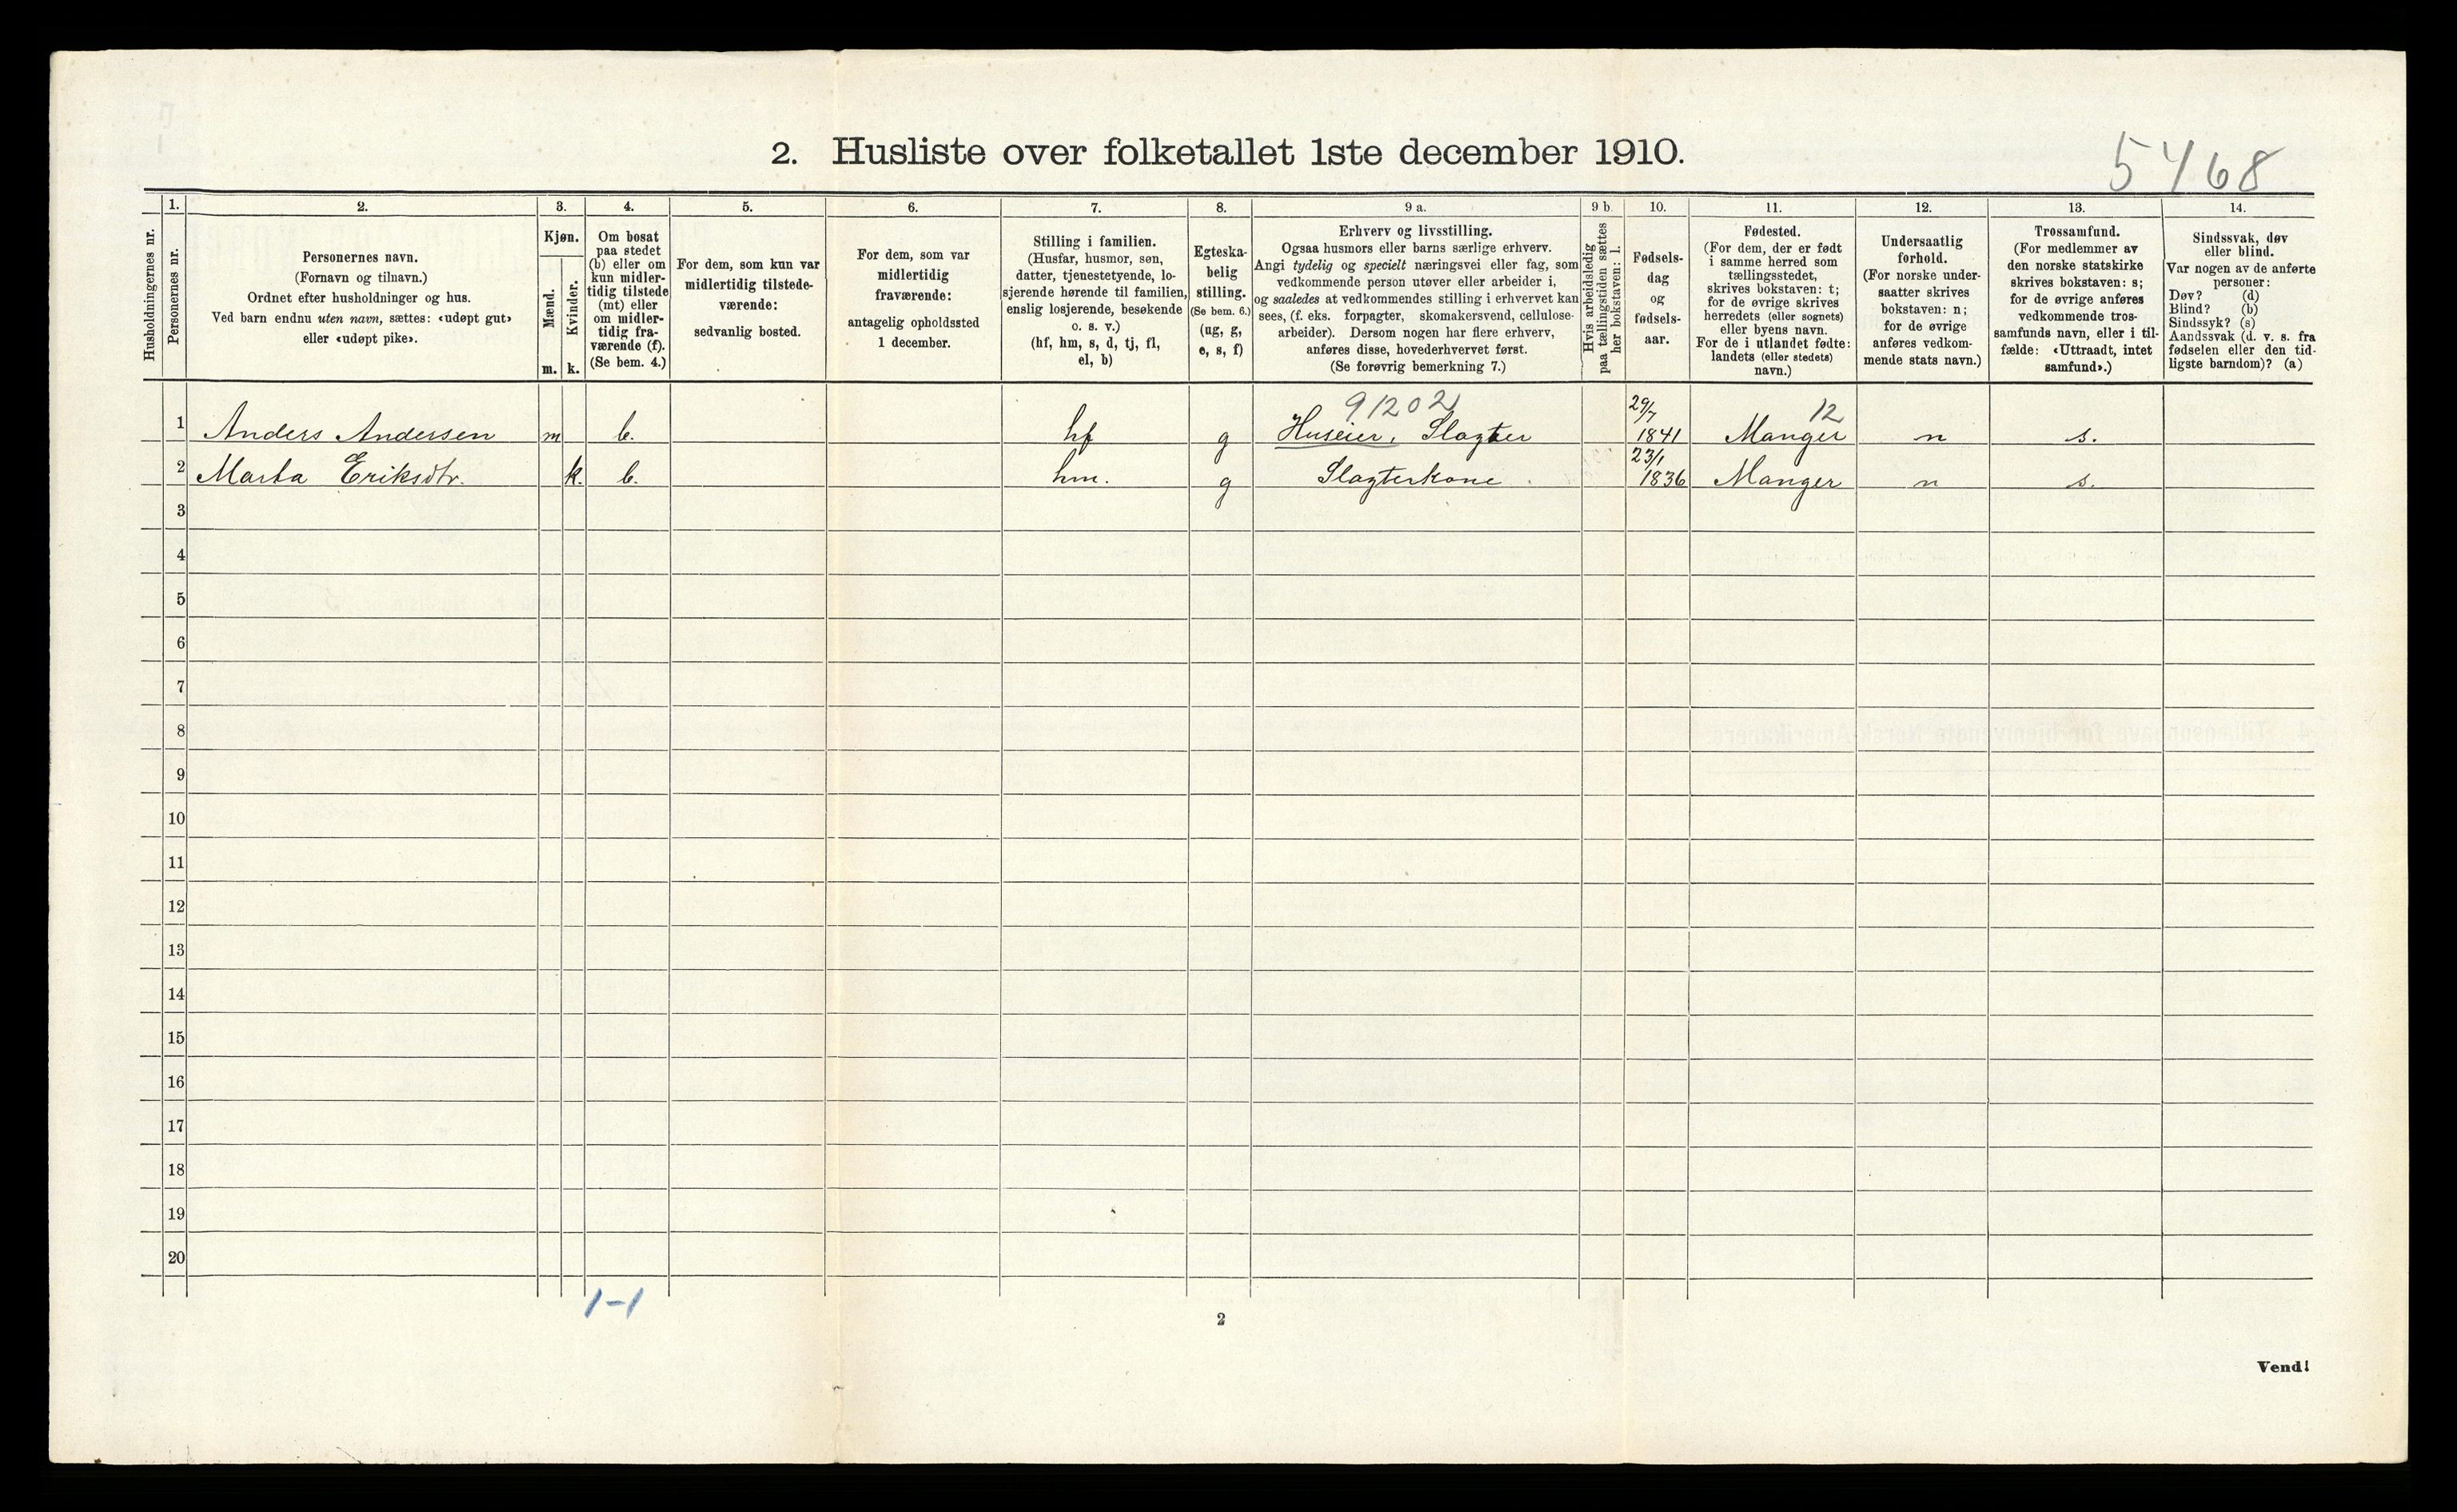 2. Husliste over folketallet 1ste december 1910.
5468
Husholdningernes nr.
1.
Personernes nr.
2.
Personernes navn.
(Fornavn og tilnavn.)
Ordnet efter husholdninger og hus.
Ved barn endnu uten navn, sættes: «udøpt gut»
eller «udøpt pike».
3.
Kjøn.
Mænd.
Kvinder.
m. k.
4.
Om bosat
paa stedet
(b) eller om
kun midler-
tidig tilstede
(mt) eller
om midler-
tidig fra-
værende (f).
(Se bem. 4.)
5.
For dem, som kun var
midlertidig tilstede-
værende:
sedvanlig bosted.
6.
For dem, som var
midlertidig
fraværende:
antagelig opholdssted
1 december.
7.
Stilling i familien.
(Husfar, husmor, søn,
datter, tjenestetyende, lo-
sjerende hørende til familien,
enslig losjerende, besøkende
o. s. v.)
(hf, hm, s, d, tj, fl,
el, b)
8.
Egteska-
belig
stilling.
(Se bem. 6.)
(ug, g,
e, s, f)
9 a.
Erhverv og livsstilling.
Ogsaa husmors eller barns særlige erhverv.
Angi tydelig og specielt næringsvei eller fag, som
vedkommende person utøver eller arbeider i,
og saaledes at vedkommendes stilling i erhvervet kan
sees, (f. eks. forpagter, skomakersvend, cellulose-
arbeider). Dersom nogen har flere erhverv,
anføres disse, hovederhvervet først.
(Se forøvrig bemerkning 7.)
9 b.
Hvis arbeidsledig
paa tællingstiden sættes
her bokstaven: l.
10.
Fødsels-
dag
og
fødsels-
aar.
11.
Fødested.
(For dem, der er født
i samme herred som
tællingsstedet,
skrives bokstaven: t;
for de øvrige skrives
herredets (eller sognets)
eller byens navn.
For de i utlandet fødte:
landets (eller stedets)
navn.)
12.
Undersaatlig
forhold.
(For norske under-
saatter skrives
bokstaven: n;
for de øvrige
anføres vedkom-
mende stats navn.)
13.
Trossamfund.
(For medlemmer av
den norske statskirke
skrives bokstaven: s;
for de øvrige anføres
vedkommende tros-
samfunds navn, eller i til-
fælde: «Uttraadt, intet
samfund».)
14.
Sindssvak, døv
eller blind.
Var nogen av de anførte
personer:
Døv? (d)
Blind? (b)
Sindssyk? (s)
Aandssvak (d. v. s. fra
fødselen eller den tid-
ligste barndom)? (a)
91202 29/7 12
1 Anders Andersen m b. hf g Huseier, Slagter 1841 Manger n s.
23/1
2 Marta Eriksdtr. k. b. hm. g Slagterkone 1836 Manger n s.
3
4
5
6
7
8
9
10
11
12
13
14
15
16
17
18
19
20
1-1
2
Vend!